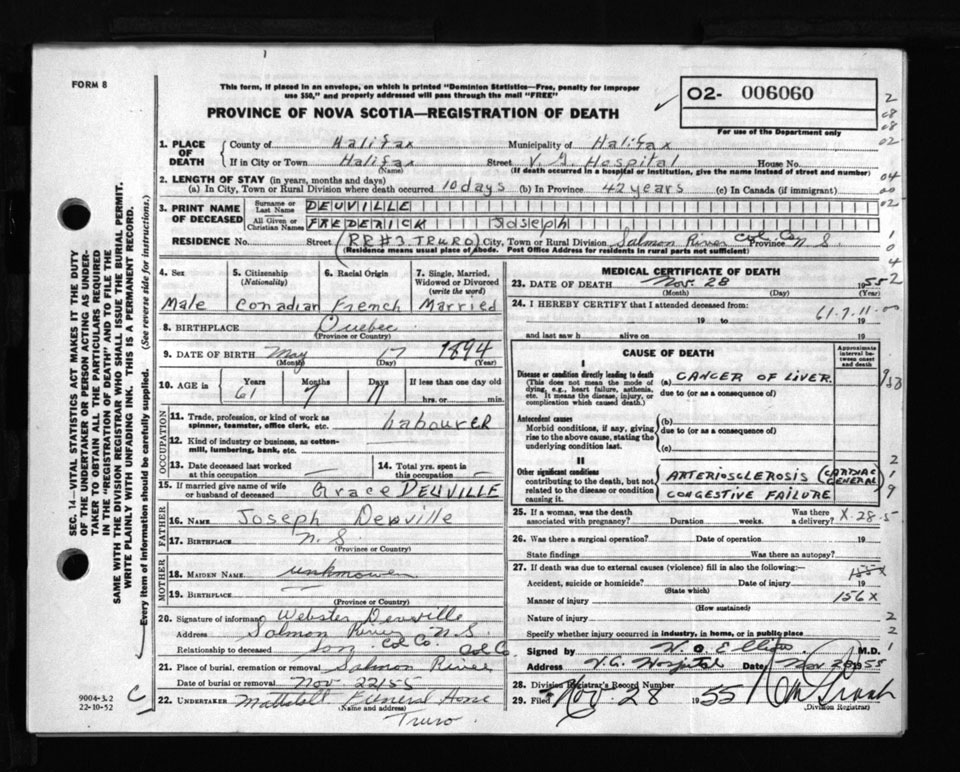 FORM 8
This form, if placed in an envelope, on which is printed "Dominion Statistics—Free, penalty for improper
use $50," and properly addressed will pass through the mail "FREE"
PROVINCE OF NOVA SCOTIA—REGISTRATION OF DEATH
02- 006060
For use of the Department only
SEC. 14—VITAL STATISTICS ACT MAKES IT THE DUTY
OF THE UNDERTAKER OR PERSON ACTING AS UNDER-
TAKER TO OBTAIN ALL THE PARTICULARS REQUIRED
IN THE "REGISTRATION OF DEATH" AND TO FILE THE
SAME WITH THE DIVISION REGISTRAR WHO SHALL ISSUE THE BURIAL PERMIT.
WRITE PLAINLY WITH UNFADING INK. THIS IS A PERMANENT RECORD.
Every item of information should be carefully supplied. (See reverse side for instructions.)
1. PLACE OF DEATH County of Halifax Municipality of Halifax
If in City or Town Halifax Street V. G. Hospital House No.
(Name) (If death occurred in a hospital or institution, give the name instead of street and number)
2. LENGTH OF STAY (in years, months and days)
(a) In City, Town or Rural Division where death occurred 10 days (b) In Province 42 years (c) In Canada (if immigrant)
3. PRINT NAME OF DECEASED Surname or Last Name DEUVILLE
All Given or Christian Names FREDERICK Joseph
RESIDENCE No. Street (RR#3. TRURO) City, Town or Rural Division Salmon River Col. Co. Province N.S.
(Residence means usual place of abode. Post Office Address for residents in rural parts not sufficient)
4. Sex Male
5. Citizenship (Nationality) Canadian
6. Racial Origin French
7. Single, Married, Widowed or Divorced (write the word) Married
8. BIRTHPLACE Quebec
(Province or Country)
9. DATE OF BIRTH May 17 1894
(Month) (Day) (Year)
10. AGE in Years 61 Months 7 Days 11 If less than one day old
hrs. or min.
OCCUPATION
11. Trade, profession, or kind of work as
spinner, teamster, office clerk, etc. Labourer
12. Kind of industry or business, as cotton-
mill, lumbering, bank, etc.
13. Date deceased last worked
at this occupation —
14. Total yrs. spent in
this occupation —
15. If married give name of wife
or husband of deceased Grace DEUVILLE
FATHER
16. NAME Joseph Deuville
17. BIRTHPLACE N. S.
(Province or Country)
MOTHER
18. MAIDEN NAME unknowen
19. BIRTHPLACE —
(Province or Country)
20. Signature of informant Webster Deuville
Address Salmon River N. S.
Relationship to deceased Son Col Co. Col Co.
21. Place of burial, cremation or removal Salmon River
Date of burial or removal Nov 22/55
22. UNDERTAKER Funeral Home
(Name and address)
Truro.
9004-3.2
22-10-52
MEDICAL CERTIFICATE OF DEATH
23. DATE OF DEATH Nov. 28 1955
(Month) (Day) (Year)
24. I HEREBY CERTIFY that I attended deceased from:
19 to 19
61-7-11-00
and last saw h alive on 19
CAUSE OF DEATH
Approximate interval between onset and death
I
Disease or condition directly leading to death
(This does not mean the mode of
dying, e.g., heart failure, asthenia,
etc. It means the disease, injury, or
complication which caused death.)
(a) CANCER OF LIVER.
due to (or as a consequence of)
Antecedent causes
Morbid conditions, if any, giving
rise to the above cause, stating the
underlying condition last.
(b)
due to (or as a consequence of)
(c)
II
Other significant conditions
contributing to the death, but not
related to the disease or condition
causing it.
ARTERIOSCLEROSIS (CARDIAC GENERAL)
CONGESTIVE FAILURE
25. If a woman, was the death
associated with pregnancy? Duration weeks. Was there
a delivery?
X-28-5
26. Was there a surgical operation? Date of operation 19
State findings Was there an autopsy?
27. If death was due to external causes (violence) fill in also the following:—
Accident, suicide or homicide? Date of injury 19
(State which)
155X
Manner of injury 156X
(How sustained)
Nature of injury
Specify whether injury occurred in industry, in home, or in public place
Signed by M.D.
Address V.G. Hospital Date, Nov 28 1955
28. Division Registrar's Record Number
29. Filed Nov. 28 1955
(Division Registrar)